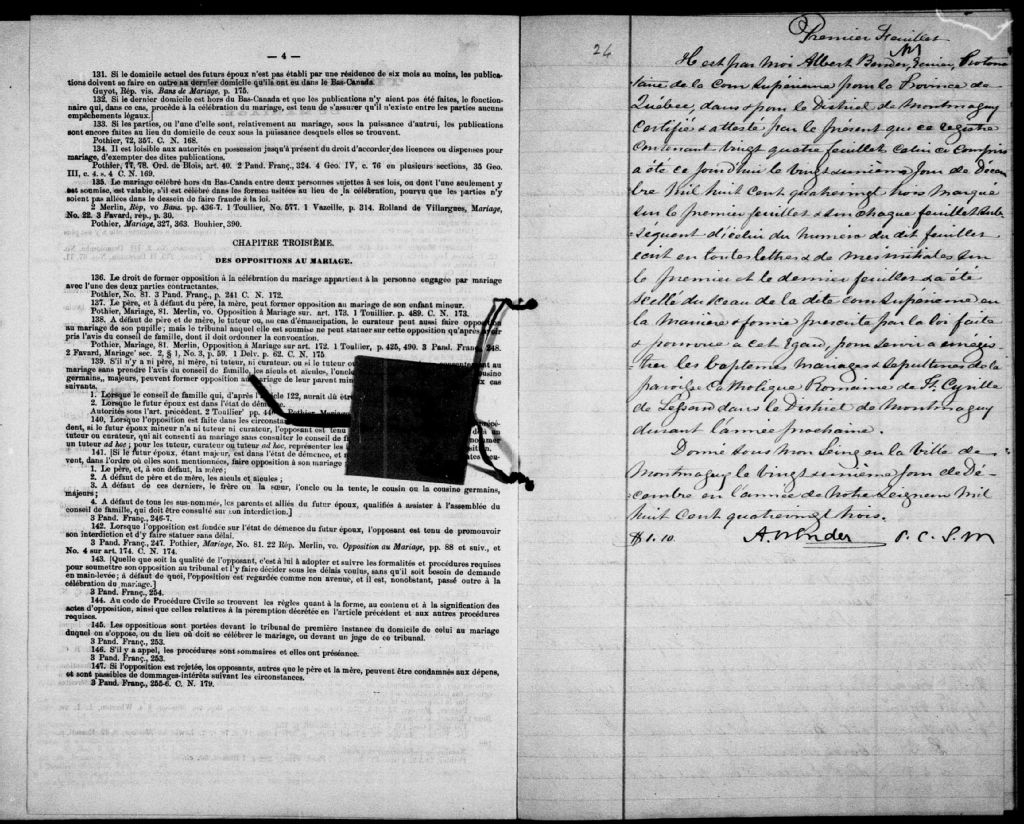 — 4 —
131. Si le domicile actuel des futurs époux n'est pas établi par une résidence de six mois au moins, les publica-
tions doivent se faire en outre au dernier domicile qu'ils ont eu dans le Bas-Canada.
Guyot, Rép. vis. Bans de Mariage, p. 175.
132. Si le dernier domicile est hors du Bas-Canada et que les publications n'y aient pas été faites, le fonction-
naire qui, dans ce cas, procède à la célébration du mariage, est tenu de s'assurer qu'il n'existe entre les parties aucuns
empêchements légaux.]
133. Si les parties, ou l'une d'elle sont, relativement au mariage, sous la puissance d'autrui, les publications
sont encore faites au lieu du domicile de ceux sous la puissance desquels elles se trouvent.
Pothier, 72, 357. C. N. 168.
134. Il est loisible aux autorités en possession jusqu'à présent du droit d'accorder des licences ou dispenses pour
mariage, d'exempter des dites publications.
Pothier, 77, 78. Ord. de Blois, art. 40. 2 Pand. Franç., 324. 4 Geo. IV, c. 76 en plusieurs sections, 35 Geo.
III, c. 4. s. 4 C. N. 169.
135. Le mariage célébré hors du Bas-Canda entre deux personnes sujettes à ses lois, ou dont l'une seulement y
est soumise, est valable, s'il est célébré dans les formes usitées au lieu de la célébration, pourvu que les parties n'y
soient pas allées dans le dessein de faire fraude à la loi.
2 Merlin, Rép, vo Bans. pp. 436-7. 1 Toullier, No. 577. 1 Vazeille, p. 314. Rolland de Villargues, Mariage,
No. 22. 3 Favard, rép., p. 30.
Pothier, Mariage, 327, 363. Bouhier, 390.
CHAPITRE TROISIÈME.
DES OPPOSITIONS AU MARIAGE.
136. Le droit de former opposition à la célébration du mariage appartient à la personne engagée par mariage
avec l'une des deux parties contractantes.
Pothier, No. 81. 3 Pand. Franç., p. 241 C. N. 172.
137. Le père, et à défaut du père, la mère, peut former opposition au mariage de son enfant mineur.
Pothier, Mariage, 81. Merlin, vo. Opposition à Mariage sur. art. 173. 1 Touillier. p. 489. C. N. 173.
138. A défaut de père et de mère, le tuteur ou, au cas d'émancipation, le curateur peut aussi faire opposition
au mariage de son pupille; mais le tribunal auquel elle est soumise ne peut statuer sur cette opposition qu'après avoir
pris l'avis du conseil de famille, dont il doit ordonner la convocation.
Pothier, Mariage, 81. Merlin, Opposition à Mariage sur art. 172. 1 Toulier, p. 425, 490. 3 Pand. Franç. 248.
2 Favard, Mariage' sec. 2, § 1, No. 3, p. 59. 1 Delv. p. 62. C. N. 175
139. S'il n'y a ni père, ni mère, ni tuteur, ni curateur, ou si le tuteur ou
mariage sans prendre l'avis du conseil de famille, les aieuls et aieules, l'oncle cousine
germains, majeurs, peuvent former opposition au mariage de leur parent mineur cas
suivants.
1. Lorsque le conseil de famille qui, d'après l'article 122, aurait dû être
2. Lorsque le futur époux est dans l'état de démence.
Autorités sous l'art. précédent. 2 Toullier' pp. 440 Pothier, Mariage
140. Lorsque l'opposition est faite dans les circonstances
dent, si le futur époux mineur n'a ni tuteur ni curateur, l'opposant est tenu
tuteur ou curateur, qui ait consenti au mariage sans consulter le conseil de
un tuteur ad hoc; pour les tuteur, curateur ou tuteur ad hoc, représenter les
141. [Si le futur époux, étant majeur, est dans l'état de démence, et
vent, dans l'ordre où elles sont mentionnées, faire opposition à son mariage
1. Le père, et, à son défaut, la mère;
2. A défaut de père et de mère, les aieuls et aieules;
3. A défaut de ces derniers, le frère ou la sœur, l'oncle ou la tente, le cousin ou la cousine germains,
majeurs;
4. A défaut de tous les sus-nommés, les parents et alliés du futur époux, qualifiés à assister à l'assemblée du
conseil de famille, qui doit être consulté sur son interdiction.]
3 Pand. Franç., 246-7.
142. Lorsque l'opposition est fondée sur l'état de démence du futur époux, l'opposant est tenu de promouvoir
son interdiction et d'y faire statuer sans délai.
3 Pand. Franç. 247. Pothier, Mariage, No. 81. 22 Rép. Merlin, vo. Opposition au Mariage, pp. 88 et suiv., et
No. 4 sur art. 174. C. N. 174.
143. [Quelle que soit la qualité de l'opposant, c'est à lui à adopter et suivre les formalités et procédures requises
pour soumettre son opposition au tribunal et l'y faire décider sous les délais voulus, sans qu'il soit besoin de demande
en main-levée; à défaut de quoi, l'opposition est regardée comme non avenue, et il est, nonobstant, passé outre à la
célébration du mariage.]
3 Pand. Franç., 254.
144. Au code de Procédure Civile se trouvent les règles quant à la forme, au contenu et à la signification des
actes d'opposition, ainsi que celles relatives à la péremption décrétée en l'article précédent et aux autres procédures
requises.
145. Les oppositions sont portées devant le tribunal de première instance du domicile de celui au mariage
duquel on s'oppose, ou du lieu où doit se célébrer le mariage, ou devant un juge de ce tribunal.
3 Pand. Franç., 253.
146. S'il y a appel, les procédures sont sommaires et elles ont préséance.
3 Pand. Franç., 253.
147. Si l'opposition est rejetée, les opposants, autres que le père et la mère, peuvent être condamnés aux dépens,
et sont passibles de dommages-intérêts suivant les circonstances.
3 Pand. Franç., 255-6. C. N. 179.
24
Premier Feuillet
Il est par moi Albert Bender, Ecuier, Protono
taire de la Cour Supérieure pour la Province de
Québec, dans & pour le District de Montmagny
Certifié & attesté par le présent que ce registre
contenant vingt quatre feuillets celui ci compris
a été ce jourd'hui le vingt unième jour de Décem
bre Mil huit cent quatrevingt trois marqué
sur le premier feuillet & sur chaque feuillet sub-
-sequent d'icelui du numéro du dit feuillet
écrit en toutes lettres & de mes initiales sur
le premier et le dernier feuillet & a été
scellé du sceau de la dite cour Supérieure en
la manière & forme prescrite par la loi faite
& pourvue à cet égard, pour servir à enregis-
trer les baptemes mariages & sépultures de la
paroisse Catholique Romaine de St. Cyrille
de Lessard dans le District de Montmagny
durant l'année prochaine.
Donné sous mon Seing en la Ville de
Montmagny le vingt unième jour de Dé
cembre en l'année de Notre Seigneur Mil
huit cent quatrevingt trois.
$1.10 A. Bender P. C. S. M